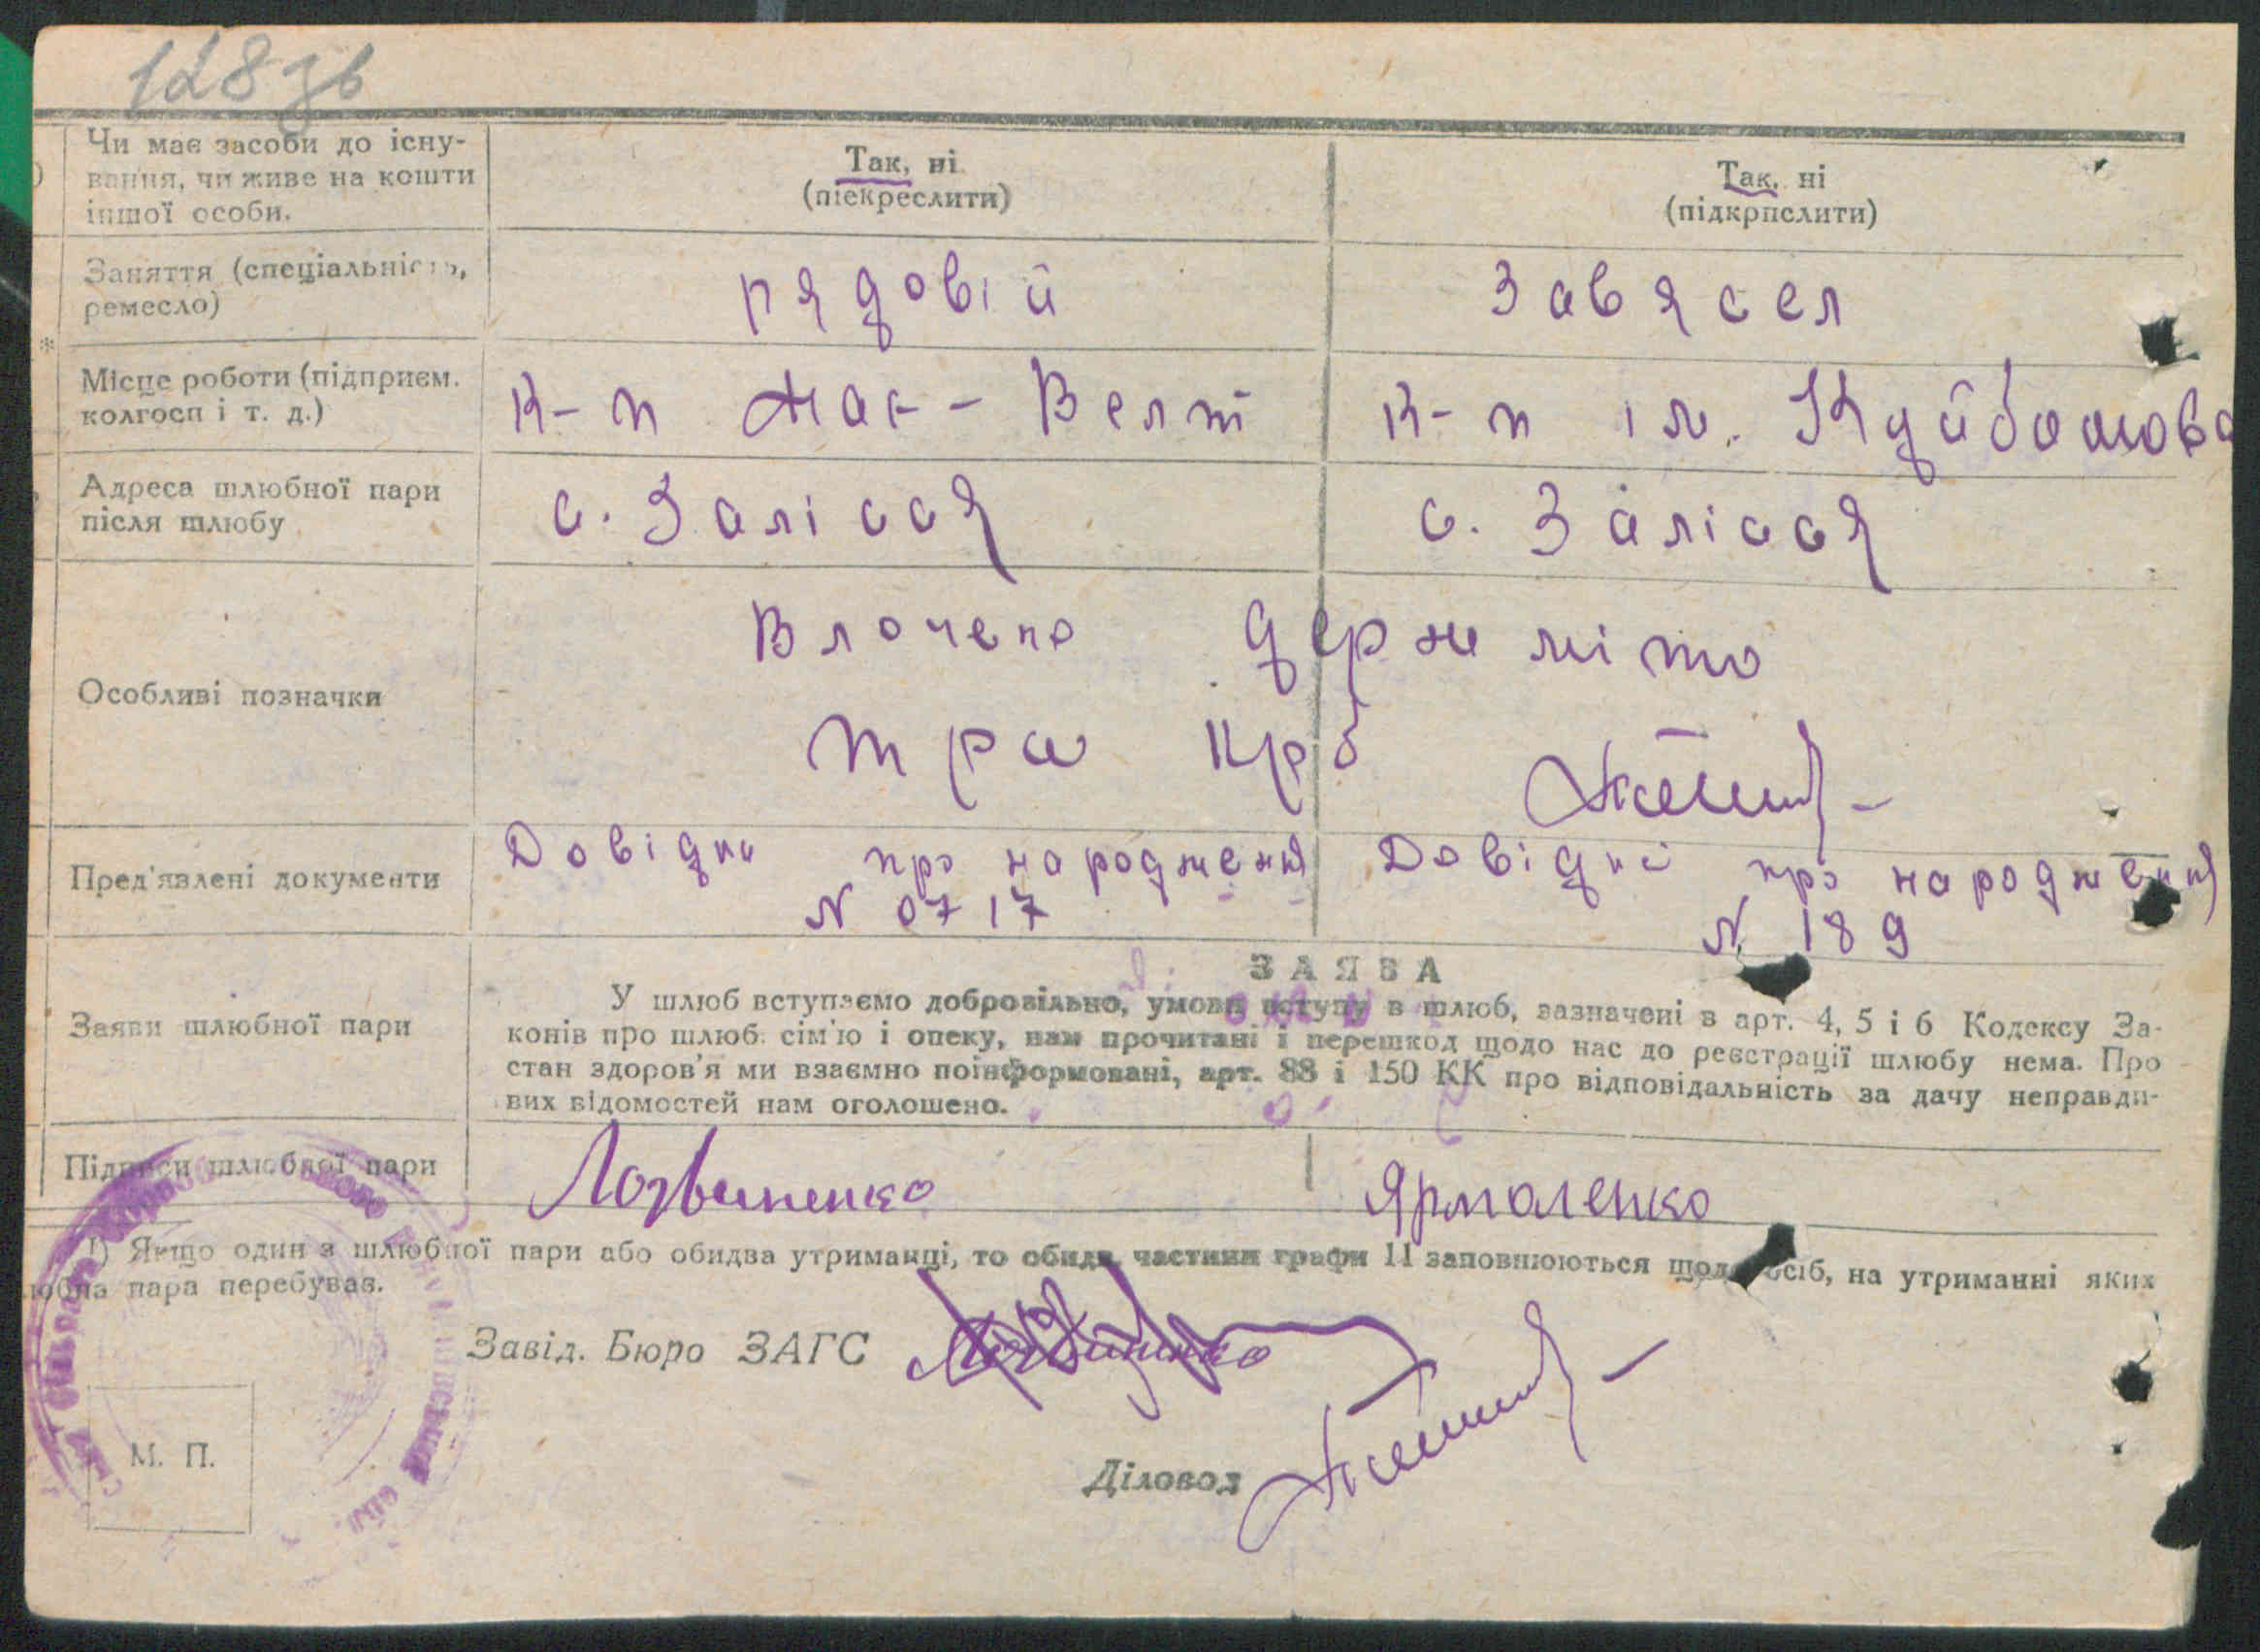 128 зв
Чи має засоби до існу-
вання, чи живе на кошти
іншої особи.
Так, ні
(піекреслити)
Так, ні
(підкрпслити)
Заняття (спеціальність,
ремесло)
рядовій
Завясел
Місце роботи (підприєм.
колгосп і т. д.)
К-п Мак-Велт
К-п ім. Куйбошова
Адреса шлюбної пари
після шлюбу
с. Залісся
с. Залісся
Особливі позначки
Влочено держ мито
три крб
Пред'явлені документи
Довідки про народження
N 0717
Довідкі про народження
N 189
Заяви шлюбної пари
ЗАЯВА
У шлюб вступаємо добровільно, умови вступу в шлюб, зазначені в арт. 4, 5 і 6 Кодексу За-
конів про шлюб. сім'ю і опеку, нам прочитані і перешкод щодо нас до реєстрації шлюбу нема. Про
стан здоров'я ми взаємно поінформовані, арт. 88 і 150 КК про відповідальність за дачу неправди-
вих відомостей нам оголошено.
Підписи шлюбної пари
Логвиненко
Ярмаленко
1) Якщо один з шлюбної пари або обидва утриманці, то обидв частини графи 11 заповнюються щодо осіб, на утриманні яких
юбна пара перебуває.
Завід. Бюро ЗАГС
Діловод
М. П.